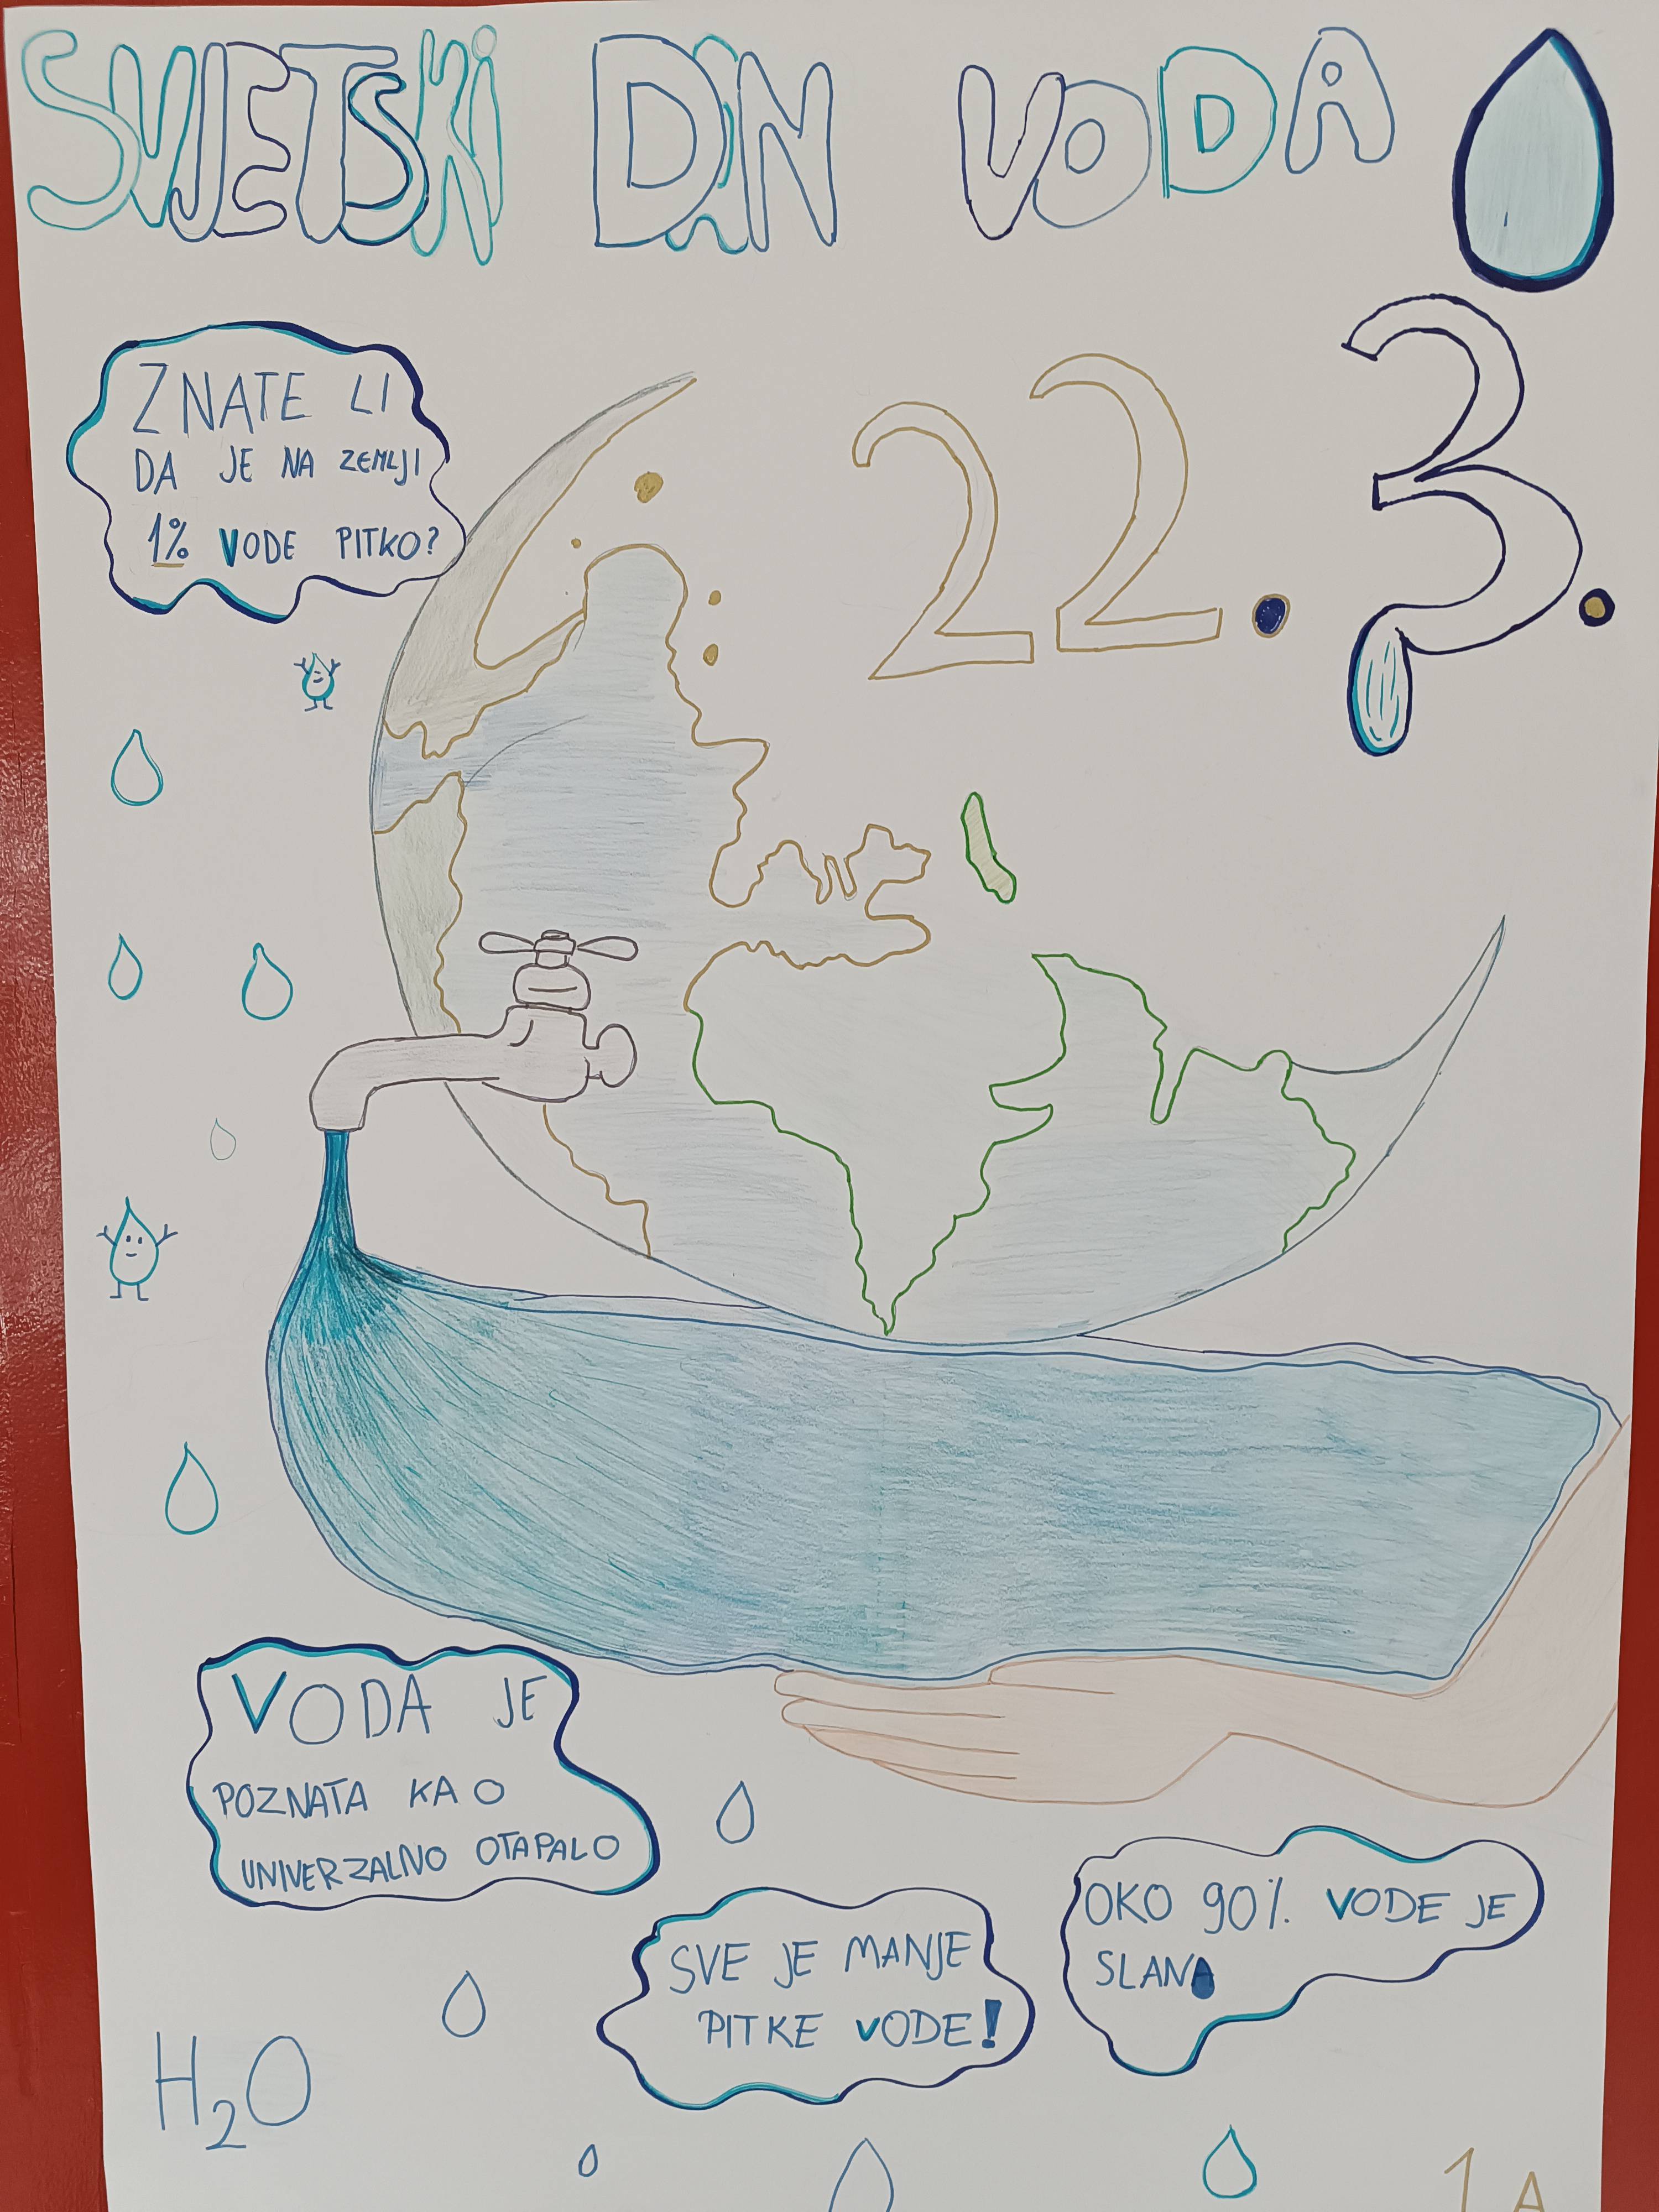 SVJETSKI DAN VODA
22.3.
ZNATE LI
DA JE NA ZEMLJI
1% VODE PITKO?
VODA JE
POZNATA KAO
UNIVERZALNO OTAPALO
SVE JE MANJE
PITKE VODE!
OKO 90% VODE JE
SLANA
H₂O
1A